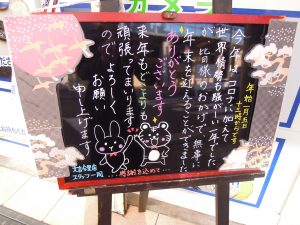 カメラ
年始一月五日
十二時からです
今年はコロナに加えて
世界情勢も騒がしい一年でした
が皆様のおかげで無事に
年末を迎えることができました
ありがとう
ございます
来年もどこよりも
頑張ってまいります
ので、よろしく
お願い
申し上げます
スタッフ一同
感謝を込めて…